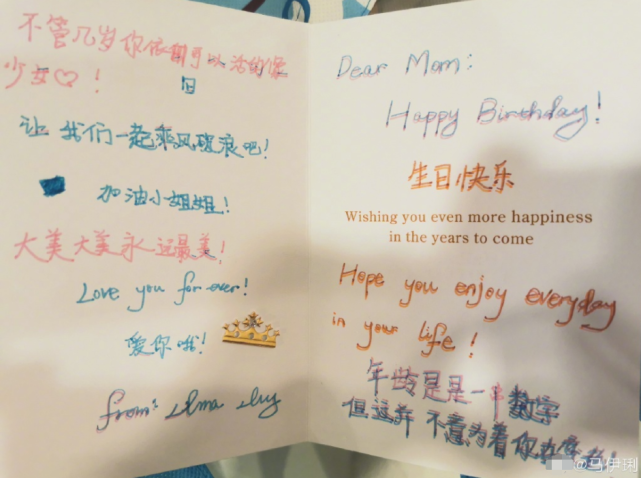 不管几岁你依旧可以活的像
少女♡！
旧
让我们一起乘风破浪吧！
加油小姐姐！
大美大美永远最美！
Love you for ever!
爱你哦！
from:
Dear Mom:
Happy Birthday!
生日快乐
Wishing you even more happiness
in the years to come
Hope you enjoy everyday
in your life!
年龄是是一串数字
但这并不意为着你
@马伊琍